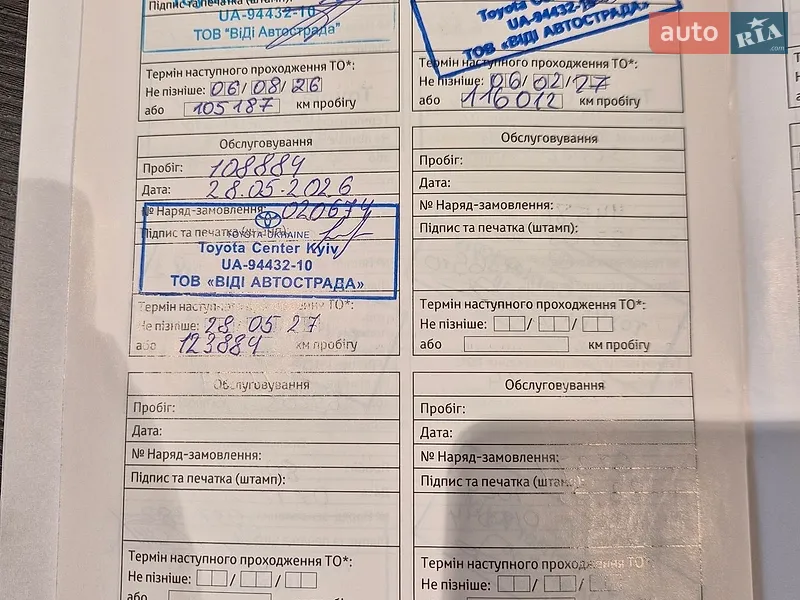 Підпис та печатка (штамп):
UA-94432-10
ТОВ "Віді Автострада"
Термін наступного проходження ТО*:
Не пізніше: 06/08/26
або 105187 км пробігу
Toyota Cente
UA-94432-1
ТОВ «ВІДІ АВТОСТРАДА»
Термін наступного проходження ТО*:
Не пізніше: 06/02/27
або 116012 км пробігу
auto RIA .com
Обслуговування
Пробіг: 108884
Дата: 28.05.2026
№ Наряд-замовлення: 020674
Підпис та печатка (штамп):
TOYOTA-UKRAINE
Toyota Center Kyiv
UA-94432-10
ТОВ «ВІДІ АВТОСТРАДА»
Термін наступного проходження ТО*:
Не пізніше: 28 05 27
або 123884 км пробігу
Обслуговування
Пробіг:
Дата:
№ Наряд-замовлення:
Підпис та печатка (штамп):
Термін наступного проходження ТО*:
Не пізніше: / /
або км пробігу
Обслуговування
Пробіг:
Дата:
№ Наряд-замовлення:
Підпис та печатка (штамп):
Термін наступного проходження ТО*:
Не пізніше: / /
або
Обслуговування
Пробіг:
Дата:
№ Наряд-замовлення:
Підпис та печатка (штамп):
Термін наступного проходження ТО*:
Не пізніше: / /